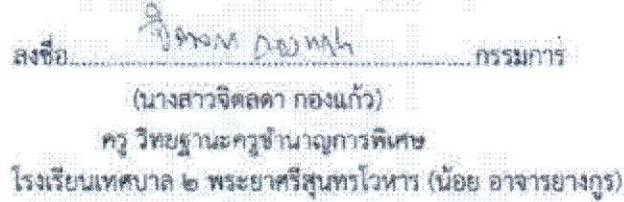 ลงชื่อ........................................................กรรมการ
(นางสาวจิตลดา กองแก้ว)
ครู วิทยฐานะครูชำนาญการพิเศษ
โรงเรียนเทศบาล ๒ พระยาศรีสุนทรโวหาร (น้อย อาจารยางกูร)